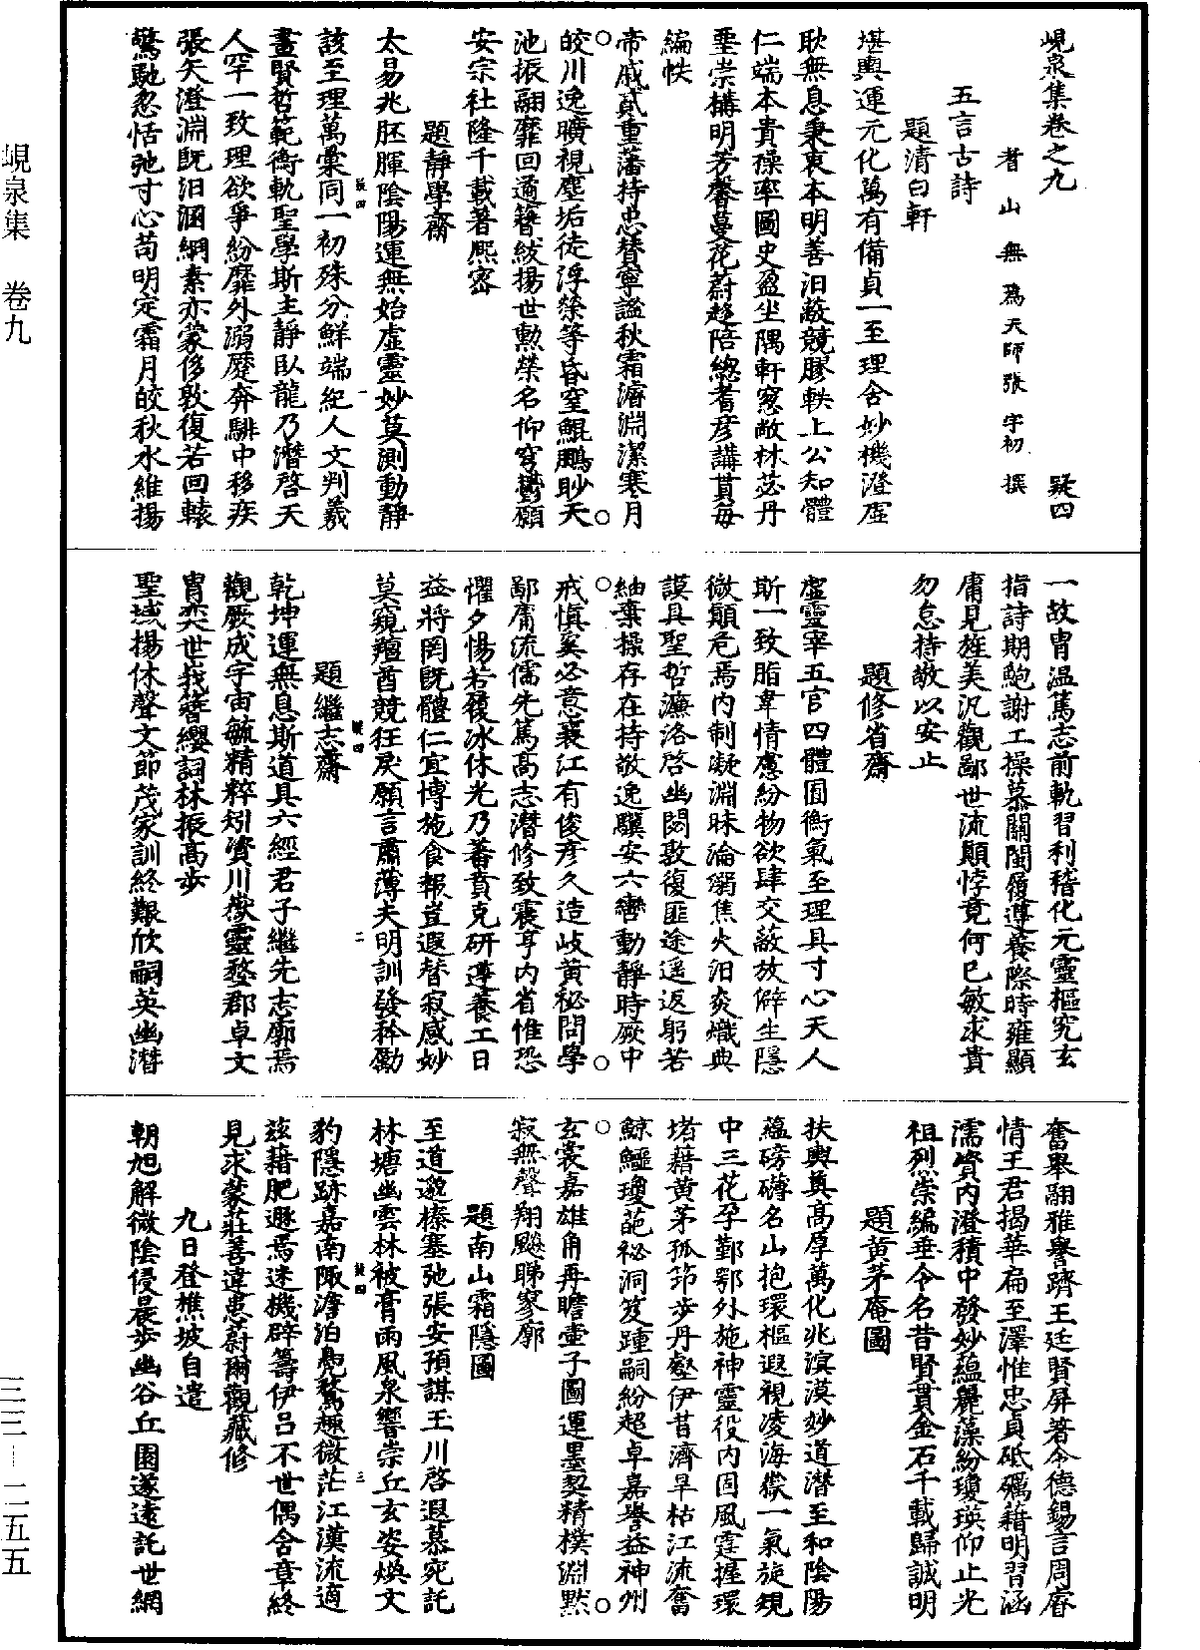 峴泉集卷之九
疑四
耆山無爲天師張宇初撰
五言古詩
題清白軒
堪輿運元化萬有備貞一至理舍妙機澄虛
耿無息秉衷本明善汨蔽競膠軼上公知體
仁端本貴操率圖史盈坐隅軒窓敞林苾丹
堊崇構明芳馨蔓花蔚趍陪總耆彦講貫每
編帙
帝戚貳重藩持忠賛寧謐秋霜濬淵潔寒月
皎川逸曠視塵垢徒浮榮等昏窒鯤鵬眇天
池振翮靡回遹簪紱揚世勲榮名仰穹鬱願
安宗社隆千載著熈宻
題靜學齋
太易兆胚腪陰陽運無始虛靈妙莫測動靜
該至理萬彙同一初殊分鮮端紀人文判羲
畫賢哲範衛軌聖學斯主靜臥龍乃潛啓天
人罕一致理欲爭紛靡外溺蹙奔騑中移疾
張矢澄淵既汨涵綱素亦蒙侈敦復若回轅
驚馳忽恬弛寸心苟明定霜月皎秋水維揚
一故胄温篤志前軌習利稽化元靈樞究玄
指詩期鮑謝工操慕關閩履遵養際時雍顯
庸見旌美汎觀鄙世流顛悖竟何已敏求貴
勿怠持敬以安止
題修省齋
虛靈宰五官四體囿衡氣至理具寸心天人
斯一致脂韋情慮紛物欲肆交蔽放僻生隱
微顛危焉内制凝淵昧淪溺焦火汨炎熾典
謨具聖哲濂洛啓幽閟敦復匪途遥返躬若
紬棄操存在持敬逸驥安六轡動靜時厥中
戒慎奚必意蓑江有俊彦久造岐黄秘問學
鄙庸流儒先篤高志潛修致震亨内省惟恐
懼夕惕若履冰休光乃蕃賁克研遵養工日
益將罔既體仁宜博施食報豈遐替寂感妙
莫窺羶酋競狂戾願言肅薄夫明訓發矜勵
題繼志齋
乾坤運無息斯道具六經君子繼先志廓焉
觀厥成宇宙毓精粹矧資川嶽靈婺郡卓文
胄奕世峩簪纓詞林振高步
聖域揚休聲文節茂家訓終艱欣嗣英幽潛
奮舉翮雅譽躋王廷賢屏著令德錫言周睿
情王君揭華扁至澤惟忠貞砥礪藉明習涵
濡資内澄積中發妙蘊麗藻紛瓊瑛仰止光
祖烈崇編垂令名昔賢貫金石千載歸誠明
題黄茅庵圖
扶輿奠高厚萬化兆溟漠妙道潛至和陰陽
蘊磅礴名山抱環樞遐視凌海嶽一氣旋規
中三花孕鄞鄂外施神靈役内固風霆握環
堵藉黄茅孤筇步丹壑伊昔濟旱枯江流奮
鯨鱷瓊葩祕洞笈踵嗣紛超卓嘉譽益神州
玄裳嘉雄角再瞻壷子圖運墨契精樸淵默
寂無聲翔飈睇寥廓
題南山霜隱圖
至道邈榛塞弛張安預謀王川啓遐慕宛託
林塘幽雲林被膏雨風泉響崇丘玄姿煥文
豹隱跡嘉南陬澹泊鳧鶩趣微茫江漢流適
兹藉肥遯焉迷機辟籌伊吕不世偶含章終
見求蒙莊善違患蔚爾觀藏修
九日登樵坡自遣
朝旭解微陰侵晨步幽谷丘園遂遠託世網
峴泉集 卷九
三三—二五五